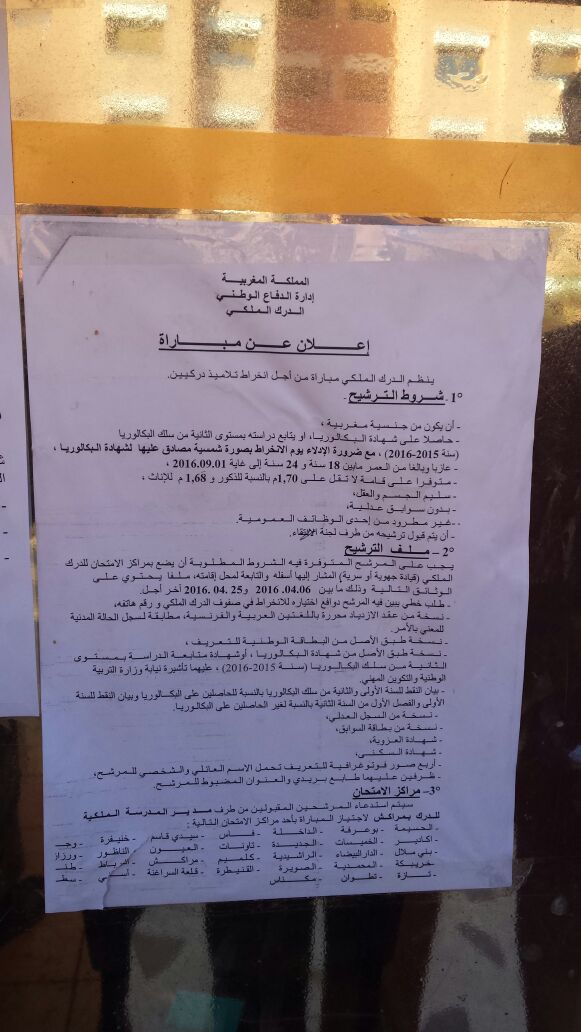 المملكة المغربية
إدارة الدفاع الوطني
الدرك الملكي
إعلان عن مباراة
ينظم الدرك الملكي مباراة من أجل انخراط تلاميذ دركيين.
1° - شروط الترشيح -
- أن يكون من جنسية مغربية ،
- حاصلا على شهادة البكالوريا، او يتابع دراسته بمستوى الثانية من سلك البكالوريا
(سنة 2015-2016) ، مع ضرورة الإدلاء يوم الانخراط بصورة شمسية مصادق عليها لشهادة البكالوريا ،
- عازبا وبالغا من العمر مابين 18 سنة و 24 سنة إلى غاية 2016.09.01 ،
- متوفرا على قامة لا تقل على 1,70م بالنسبة للذكور و 1,68 م للإناث ،
- سليم الجسم والعقل،
- بدون سوابق عدلية،
- غير مطرود من إحدى الوظائف العمومية.
- أن يتم قبول ترشيحه من طرف لجنة الانتقاء.
2° – ملف الترشيح
يجب على المرشح المتوفرة فيه الشروط المطلوبة أن يضع بمراكز الامتحان للدرك
الملكي (قيادة جهوية أو سرية) المشار إليها أسفله والتابعة لمحل إقامته، ملفا يحتوي على
الوثائق التالية وذلك ما بين 2016 .04.06 و25 .04 .2016 آخر أجل.
- طلب خطي يبين فيه المرشح دوافع اختياره للانخراط في صفوف الدرك الملكي و رقم هاتفه،
- نسخة من عقد الازدياد محررة باللغتين العربية والفرنسية، مطابقة لسجل الحالة المدنية
للمعني بالأمر.
- نسخة طبق الأصل من البطاقة الوطنية للتعريف ،
- نسخة طبق الأصل من شهادة البكالوريا ، أوشهادة متابعة الدراسة بمستوى
الثانية من سلك البكالوريا (سنة 2015-2016) ، عليهما تأشيرة نيابة وزارة التربية
الوطنية والتكوين المهني.
- بيان النقط للسنة الأولى والثانية من سلك البكالوريا بالنسبة للحاصلين على البكالوريا وبيان النقط للسنة
الأولى والفصل الأول من السنة الثانية بالنسبة لغير الحاصلين على البكالوريا.
- نسخة من السجل العدلي،
- نسخة من بطاقة السوابق،
- شهادة العزوبة،
- شهادة السكنى،
- أربع صور فوتوغرافية للتعريف تحمل الاسم العائلي والشخصي للمرشح،
- ظرفين عليهما طابع بريدي والعنوان المضبوط للمرشح.
3°– مراكز الامتحان
سيتم استدعاء المرشحين المقبولين من طرف مدير المدرسة الملكية
للدرك بمراكش لاجتياز المباراة بأحد مراكز الامتحان التالية :
- الحسيمة - بوعرفة - الداخلة - فاس - سيدي قاسم - خنيفرة - وجـ
- أكادير - الخميسات - الجديدة - تاونات - العيون - الناظور - ورزاز
- بني ملال - الدار البيضاء - الراشيدية - كلميم - مراكش - الرباط - طنـ
- خريبكة - المحمدية - الصويرة - القنيطرة - قلعة السراغنة - أسفي - سطـ
- تازة - تطوان - مكناس